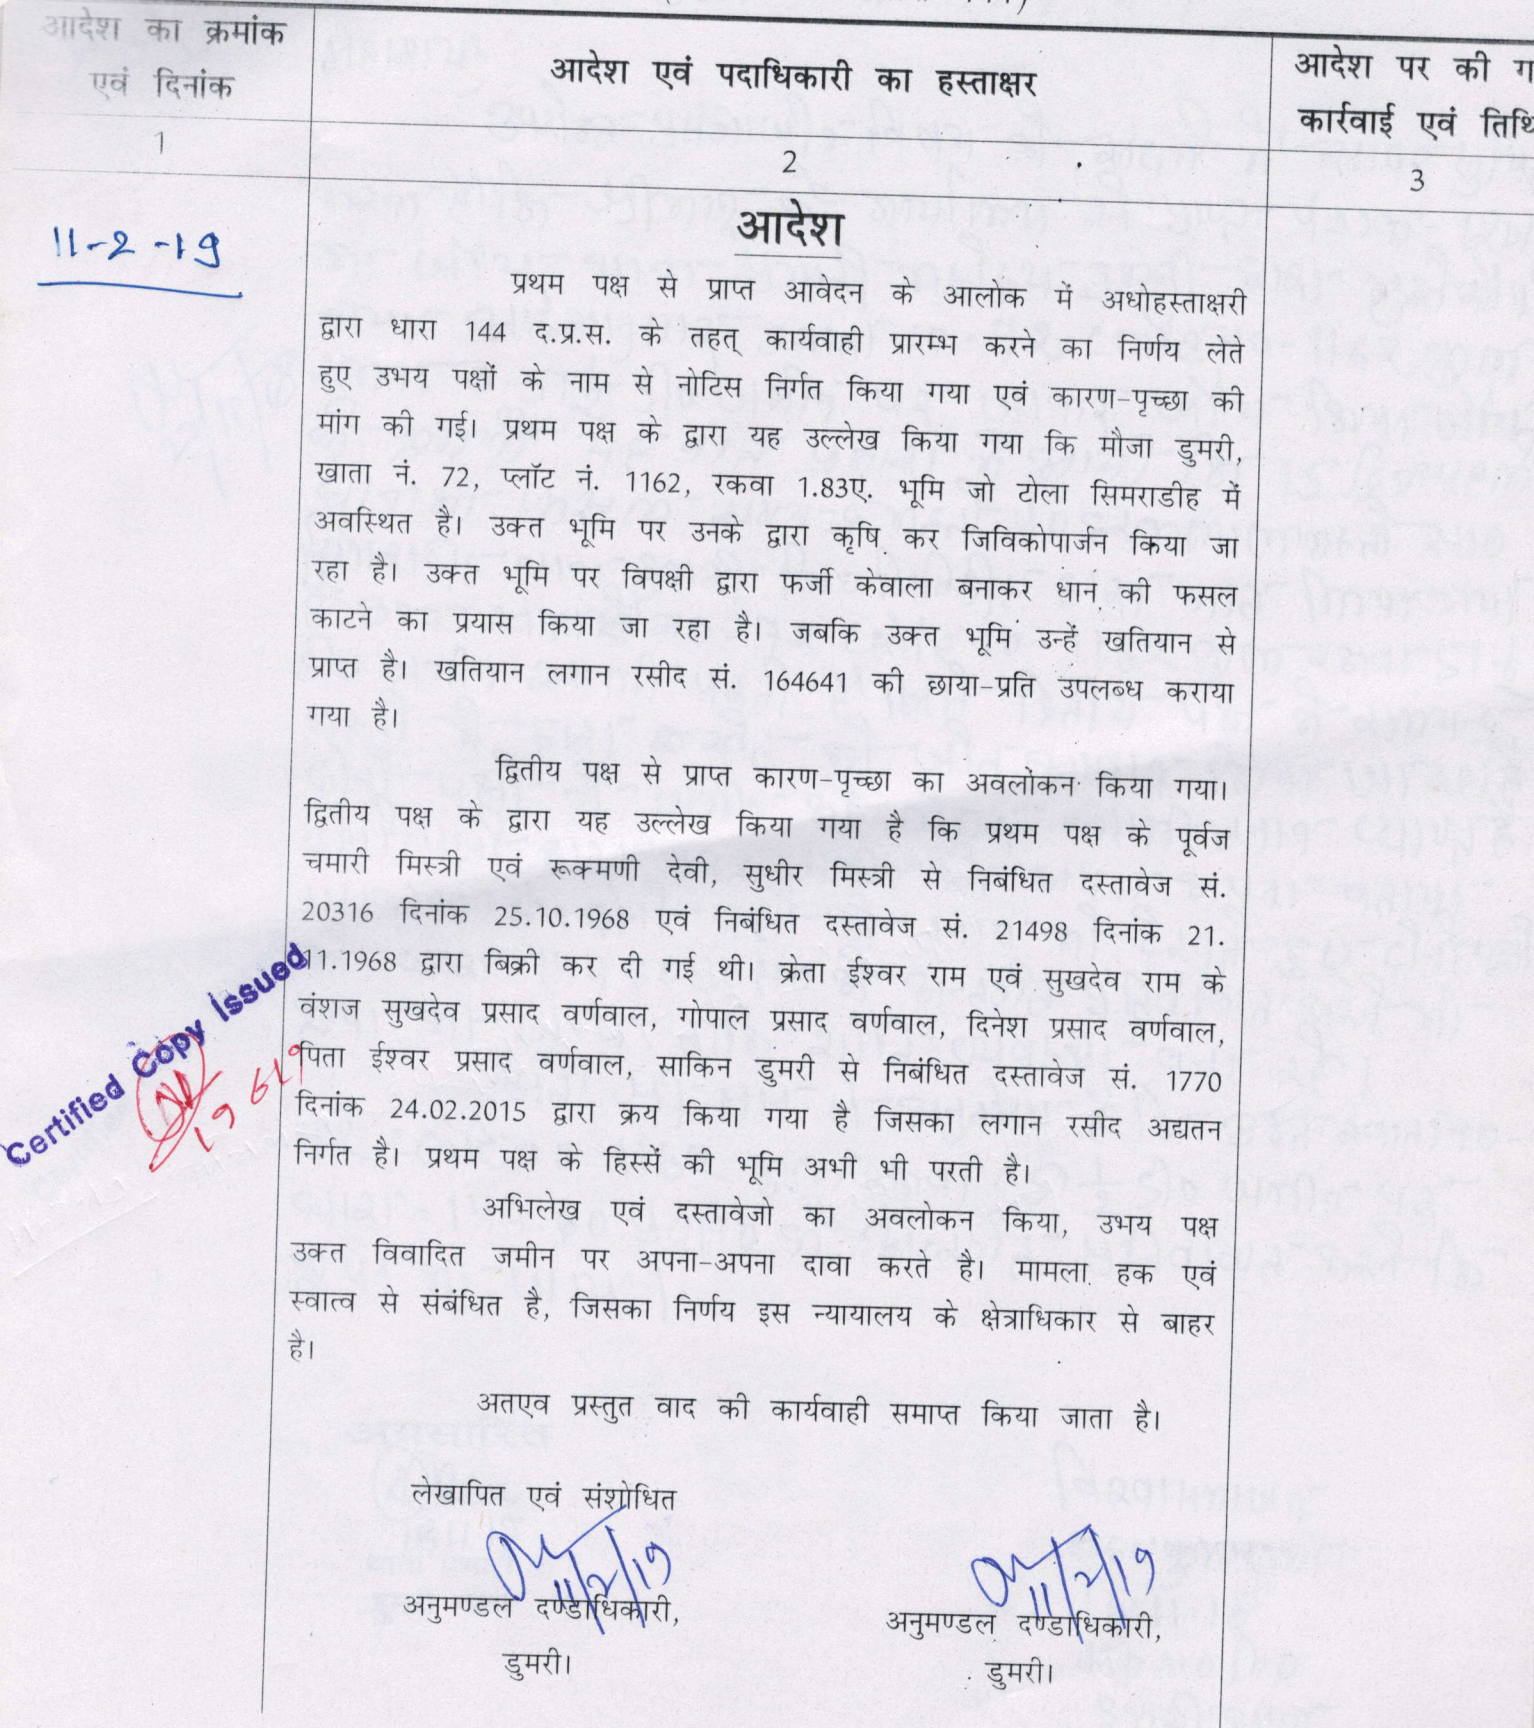 आदेश का क्रमांक
एवं दिनांक
आदेश एवं पदाधिकारी का हस्ताक्षर
आदेश पर की ग
कार्रवाई एवं तिथि
1
2
3
11-2-19
आदेश
प्रथम पक्ष से प्राप्त आवेदन के आलोक में अधोहस्ताक्षरी
द्वारा धारा 144 द.प्र.स. के तहत् कार्यवाही प्रारम्भ करने का निर्णय लेते
हुए उभय पक्षों के नाम से नोटिस निर्गत किया गया एवं कारण-पृच्छा की
मांग की गई। प्रथम पक्ष के द्वारा यह उल्लेख किया गया कि मौजा डुमरी,
खाता नं. 72, प्लॉट नं. 1162, रकवा 1.83ए. भूमि जो टोला सिमराडीह में
अवस्थित है। उक्त भूमि पर उनके द्वारा कृषि कर जिविकोपार्जन किया जा
रहा है। उक्त भूमि पर विपक्षी द्वारा फर्जी केवाला बनाकर धान की फसल
काटने का प्रयास किया जा रहा है। जबकि उक्त भूमि उन्हें खतियान से
प्राप्त है। खतियान लगान रसीद सं. 164641 की छाया-प्रति उपलब्ध कराया
गया है।
द्वितीय पक्ष से प्राप्त कारण-पृच्छा का अवलोकन किया गया।
द्वितीय पक्ष के द्वारा यह उल्लेख किया गया है कि प्रथम पक्ष के पूर्वज
चमारी मिस्त्री एवं रूक्मणी देवी, सुधीर मिस्त्री से निबंधित दस्तावेज सं.
20316 दिनांक 25.10.1968 एवं निबंधित दस्तावेज सं. 21498 दिनांक 21.
11.1968 द्वारा बिक्री कर दी गई थी। क्रेता ईश्वर राम एवं सुखदेव राम के
वंशज सुखदेव प्रसाद वर्णवाल, गोपाल प्रसाद वर्णवाल, दिनेश प्रसाद वर्णवाल,
पिता ईश्वर प्रसाद वर्णवाल, साकिन डुमरी से निबंधित दस्तावेज सं. 1770
दिनांक 24.02.2015 द्वारा क्रय किया गया है जिसका लगान रसीद अद्यतन
निर्गत है। प्रथम पक्ष के हिस्सें की भूमि अभी भी परती है।
Certified Copy Issued
19 6 19
अभिलेख एवं दस्तावेजो का अवलोकन किया, उभय पक्ष
उक्त विवादित जमीन पर अपना-अपना दावा करते है। मामला हक एवं
स्वात्व से संबंधित है, जिसका निर्णय इस न्यायालय के क्षेत्राधिकार से बाहर
है।
अतएव प्रस्तुत वाद की कार्यवाही समाप्त किया जाता है।
लेखापित एवं संशोधित
11/2/19
11/2/19
अनुमण्डल दण्डाधिकारी,
अनुमण्डल दण्डाधिकारी,
डुमरी।
डुमरी।